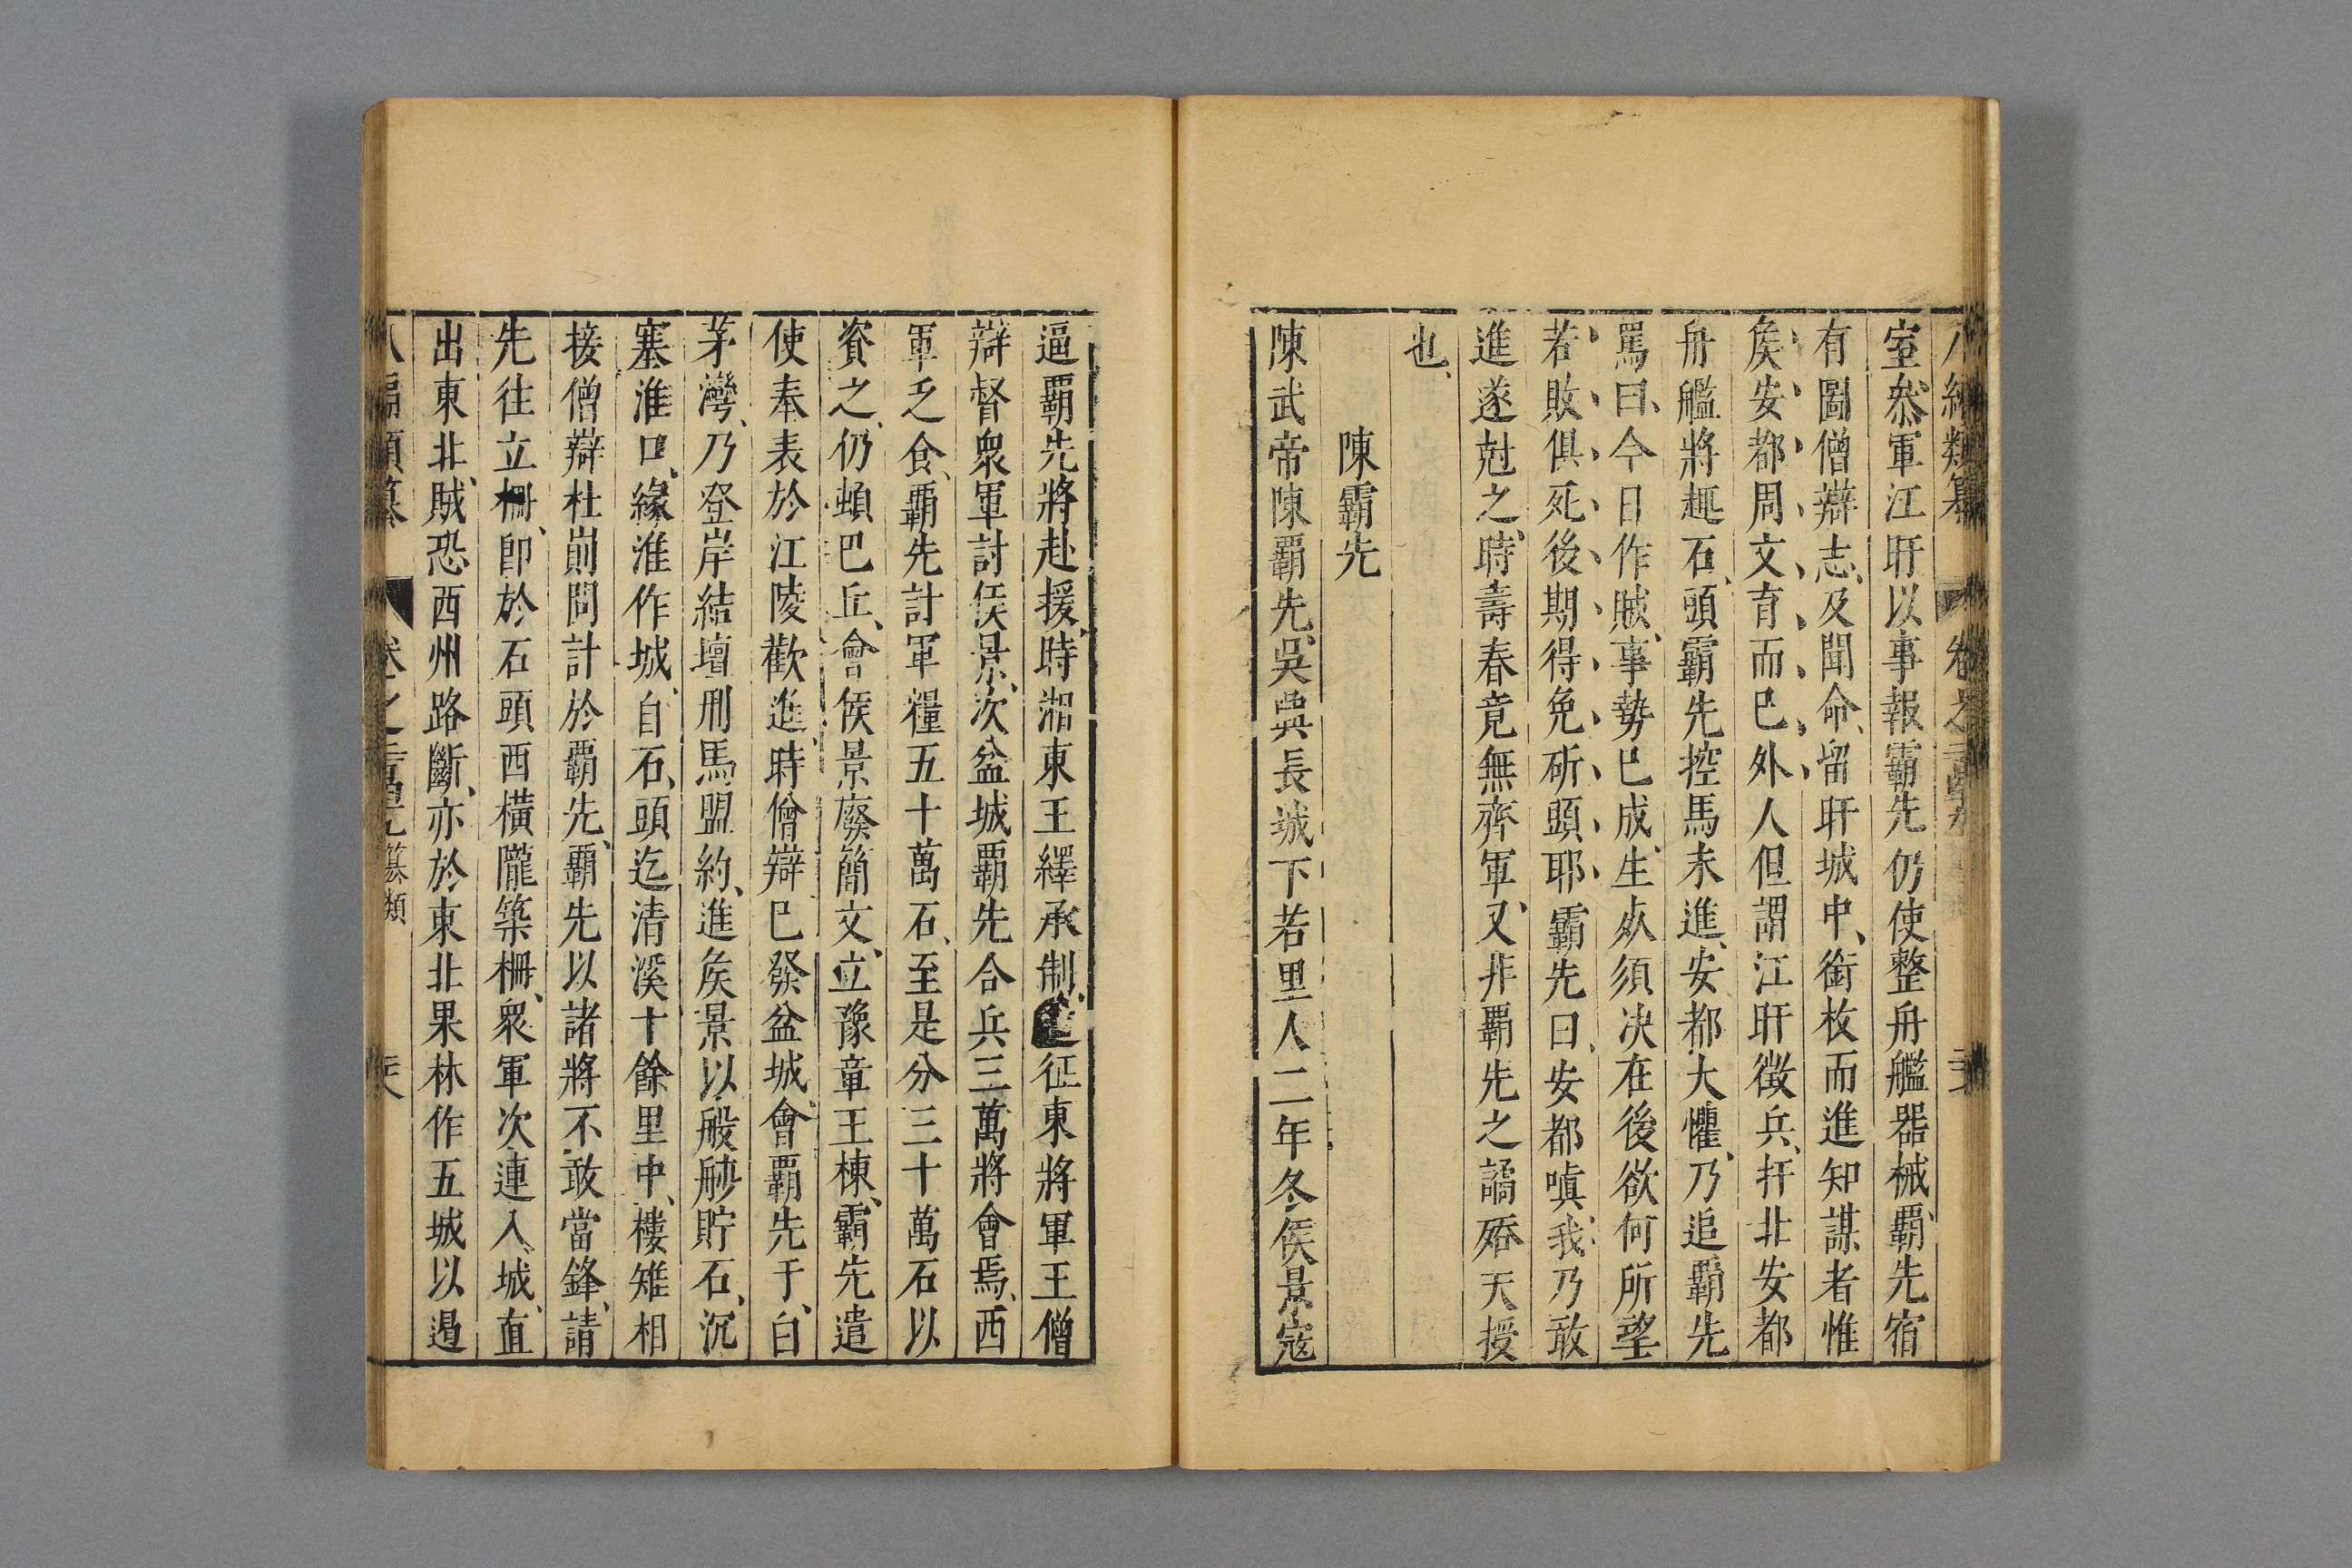 室叅軍江旰以事報霸先仍使整舟艦器械、霸先宿
有圖僧辯志、及聞命、留旰城中、銜枚而進知謀者惟
矦安都周文育而巳外人但謂江旰徵兵、扞北安都
舟艦將趣石頭霸先控馬未進、安都大懼、乃追霸先
罵曰、今日作賊、事勢巳成、生死須决在後欲何所望
若敗俱死後期得免斫頭耶霸先曰、安都嗔我乃敢
進遂尅之、時壽春竟無齊軍、又非霸先之譎殆天授
也、
陳霸先
陳武帝陳霸先、吳興長城下若里人二年冬侯景寇
逼霸先將赴援、時湘東王繹承制、征東將軍王僧
辯督衆軍討侯景、次盆城霸先合兵三萬將會焉、西
軍乏食、霸先計軍糧五十萬石、至是分三十萬石以
資之、仍頓巴丘、會侯景廢簡文、立豫章王棟、霸先遣
使奉表於江陵歡進、時僧辯巳發盆城、會霸先于、白
茅灣、乃登岸結壇刑馬盟約、進矦景以般䑧貯石、沉
塞淮口、緣淮作城、自石、頭迄清溪十餘里中、樓雉相
接僧辯杜崱問計於霸先、霸先以諸將不敢當鋒、請
先往立柵、卽於石頭西橫隴築柵、衆軍次連入城、直
出東北、賊恐西州路斷、亦於東北果林作五城以遏